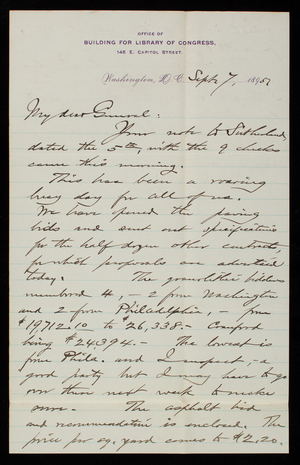 OFFICE OF
BUILDING FOR LIBRARY OF CONGRESS,
145 E. CAPITOL STREET
Washington, D. C. Sept 7, 1895
My dear General:
Your note to Sutherland
dated the 5th, with the 9 checks
came this morning.
This has been a roaring
busy day for all of us.
We have opened the paving
bids and sent out specifications
for the half dozen other contracts,
for which proposals are advertised
today. The granolithic bidders
numbered 4, - 2 from Washington
and 2 from Philadelphia, - from
$19,712.10 to $26,338. - Cranford
being $24,394. - The lowest is
from Phila. and I suspect, - a
good party but I may have to go
over there next week to make
sure. The asphalt bid
and recommendation is enclosed. The
price per sq. yard comes to $2.20.